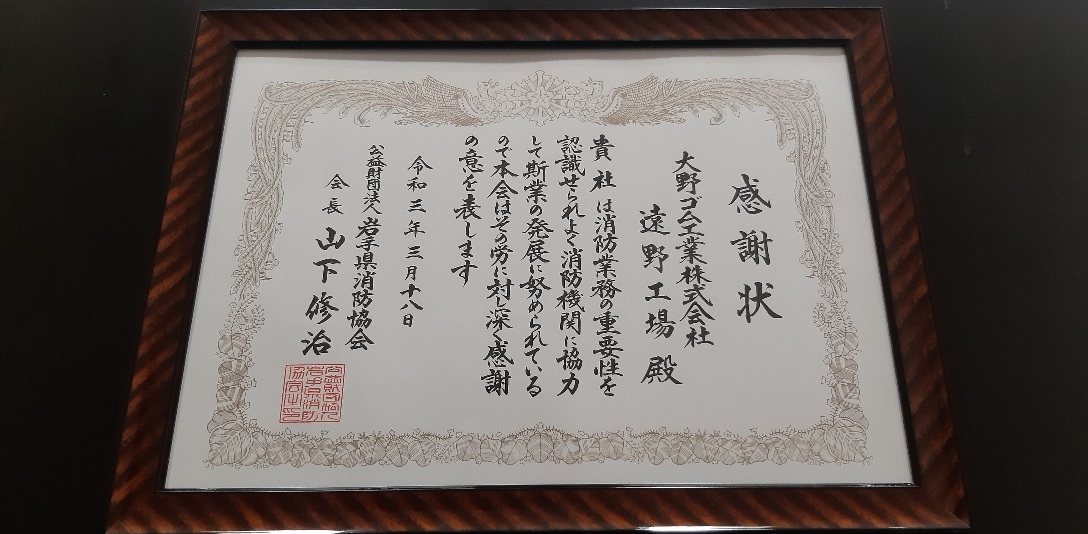 感謝状
大野ゴム工業株式会社
遠野工場殿
貴社は消防業務の重要性を
認識せられよく消防機関に協力
して斯業の発展に努められている
ので本会はその労に対し深く感謝
の意を表します
令和三年三月十八日
公益財団法人岩手県消防協会
会長山下修治